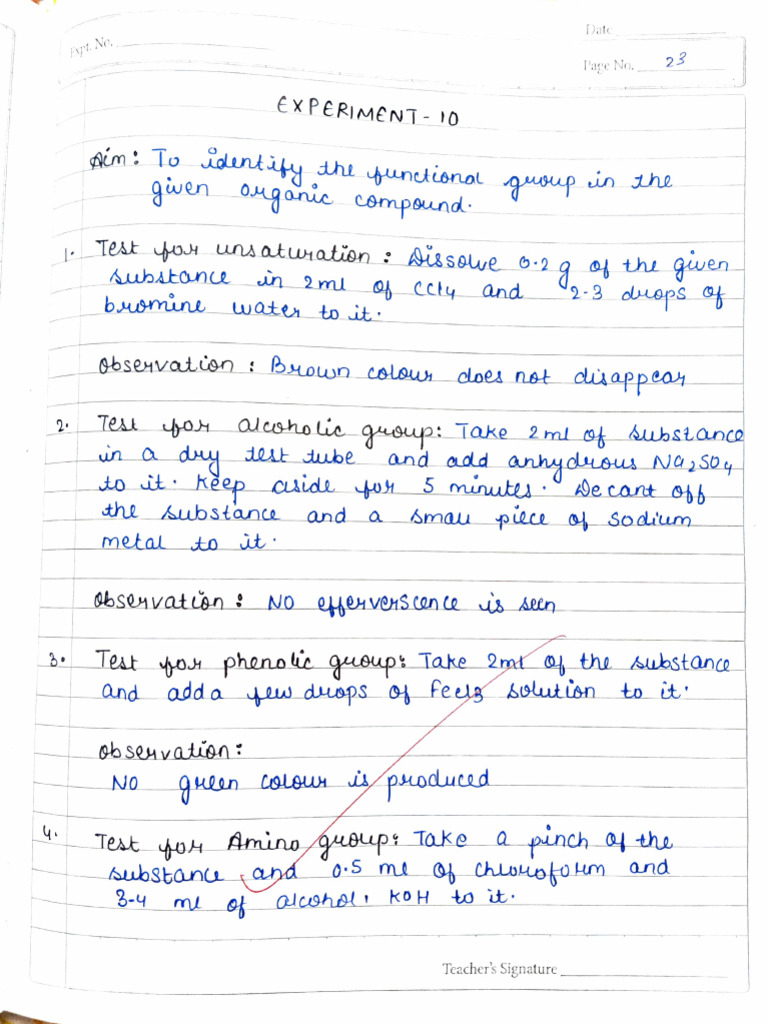 Expt. No.
Date
Page No. 23
EXPERIMENT - 10
Aim: To identify the functional group in the
given organic compound.
1. Test for unsaturation: Dissolve 0.2 g of the given
substance in 2ml of CCl4 and 2-3 drops of
bromine water to it.
Observation: Brown colour does not disappear
2. Test for alcoholic group: Take 2ml of substance
in a dry test tube and add anhydrous Na2SO4
to it. Keep aside for 5 minutes. Decant off
the substance and a small piece of sodium
metal to it.
Observation: No efferverscence is seen
3. Test for phenolic group: Take 2ml of the substance
and add a few drops of FeCl3 solution to it.
Observation:
No green colour is produced
4. Test for Amino group: Take a pinch of the
substance and 0.5 ml of chloroform and
3-4 ml of alcohol, KOH to it.
Teacher's Signature